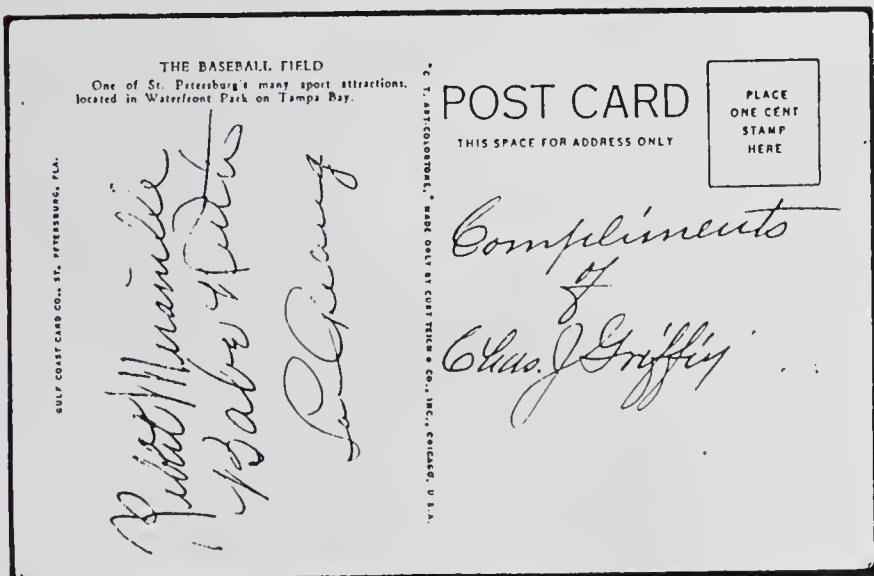 THE BASEBALL FIELD
One of St. Petersburg's many sport attractions,
located in Waterfront Park on Tampa Bay.
GULF COAST CARD CO., ST. PETERSBURG, FLA.
Babe Ruth
"C. T. ART-COLORTONE," MADE ONLY BY CURT TEICH & CO., INC., CHICAGO, U.S.A.
POST CARD
THIS SPACE FOR ADDRESS ONLY
PLACE
ONE CENT
STAMP
HERE
Compliments
of
Chas. J Griffin